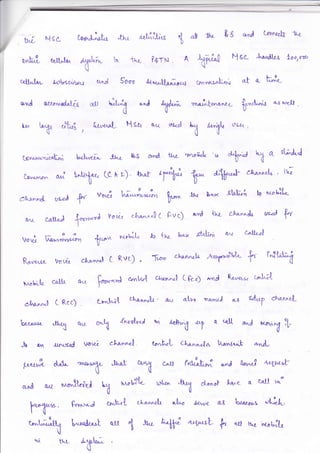 the MSC Coordinates the activities of all the BS and connects the
entire cellular system to the PSTN. A typical MSC handles 100,000
cellular subscribers and 5000 simultaneous conversation at a time,
and accomodates all billing and system maintenance functions as well.
In large cities, several MSCs are used by single
Communication between the BS and the mobile is defined by a standard
Common air interface (CAI). that specifies four different channels. The
channel used for voice transmission from the base station to mobile
are called forward voice channel (FVC) and the channels used for
voice transmission from mobile to the base station are called
Reverse voice channel (RVC). Two channels responsible for initiating
mobile calls are forward control channel (FCC) and Reverse control
channel (RCC). Control channels are also named as setup channel
because they are only involved in setting up a call and moving it
to an unused voice channel. Control channels transmit and
receive data message that carry call initiation and service request
and are monitored by mobile when they donot have a call in
progress. Forward control channels also serve as beacons which
continually broadcast all of the traffic request for all the mobile
in the system.